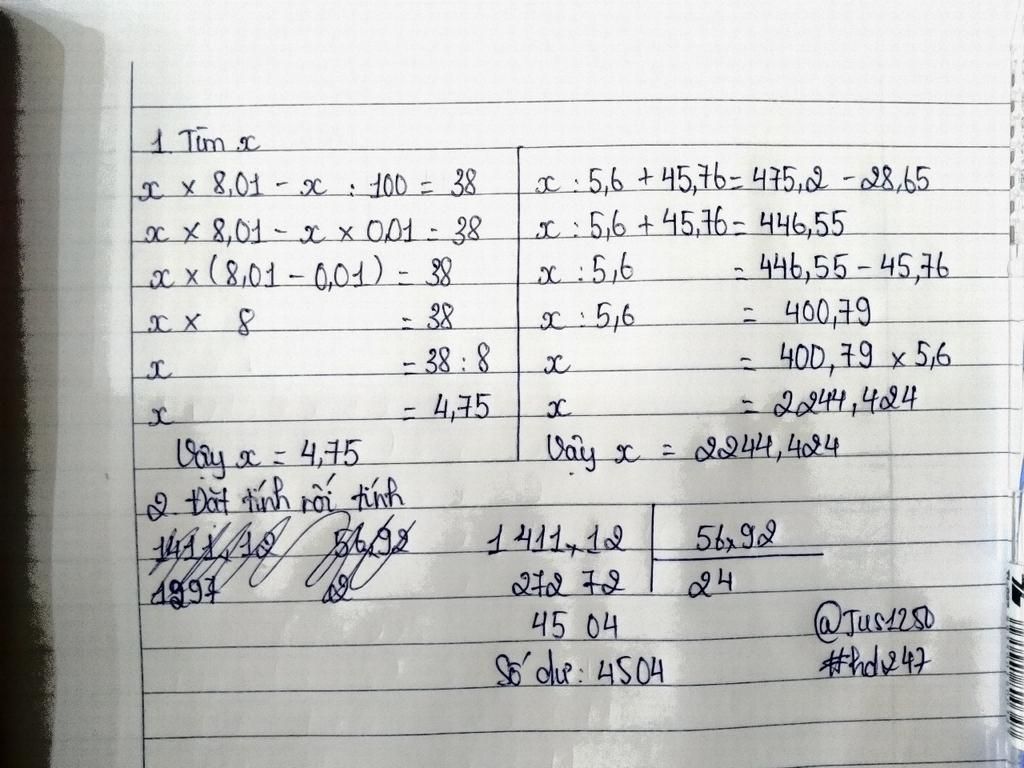 1. Tìm x
x × 8,01 - x : 100 = 38
x × 8,01 - x × 0,01 = 38
x × (8,01 - 0,01) = 38
x × 8 = 38
x = 38 : 8
x = 4,75
Vậy x = 4,75
x : 5,6 + 45,76 = 475,2 - 28,65
x : 5,6 + 45,76 = 446,55
x : 5,6 = 446,55 - 45,76
x : 5,6 = 400,79
x = 400,79 × 5,6
x = 2244,424
Vậy x = 2244,424
2. Đặt tính rồi tính
1411,12 56,92
2
1411,12 56,92
272 72 24
45 04
Số dư: 4504
@Jus1250
#hdv247